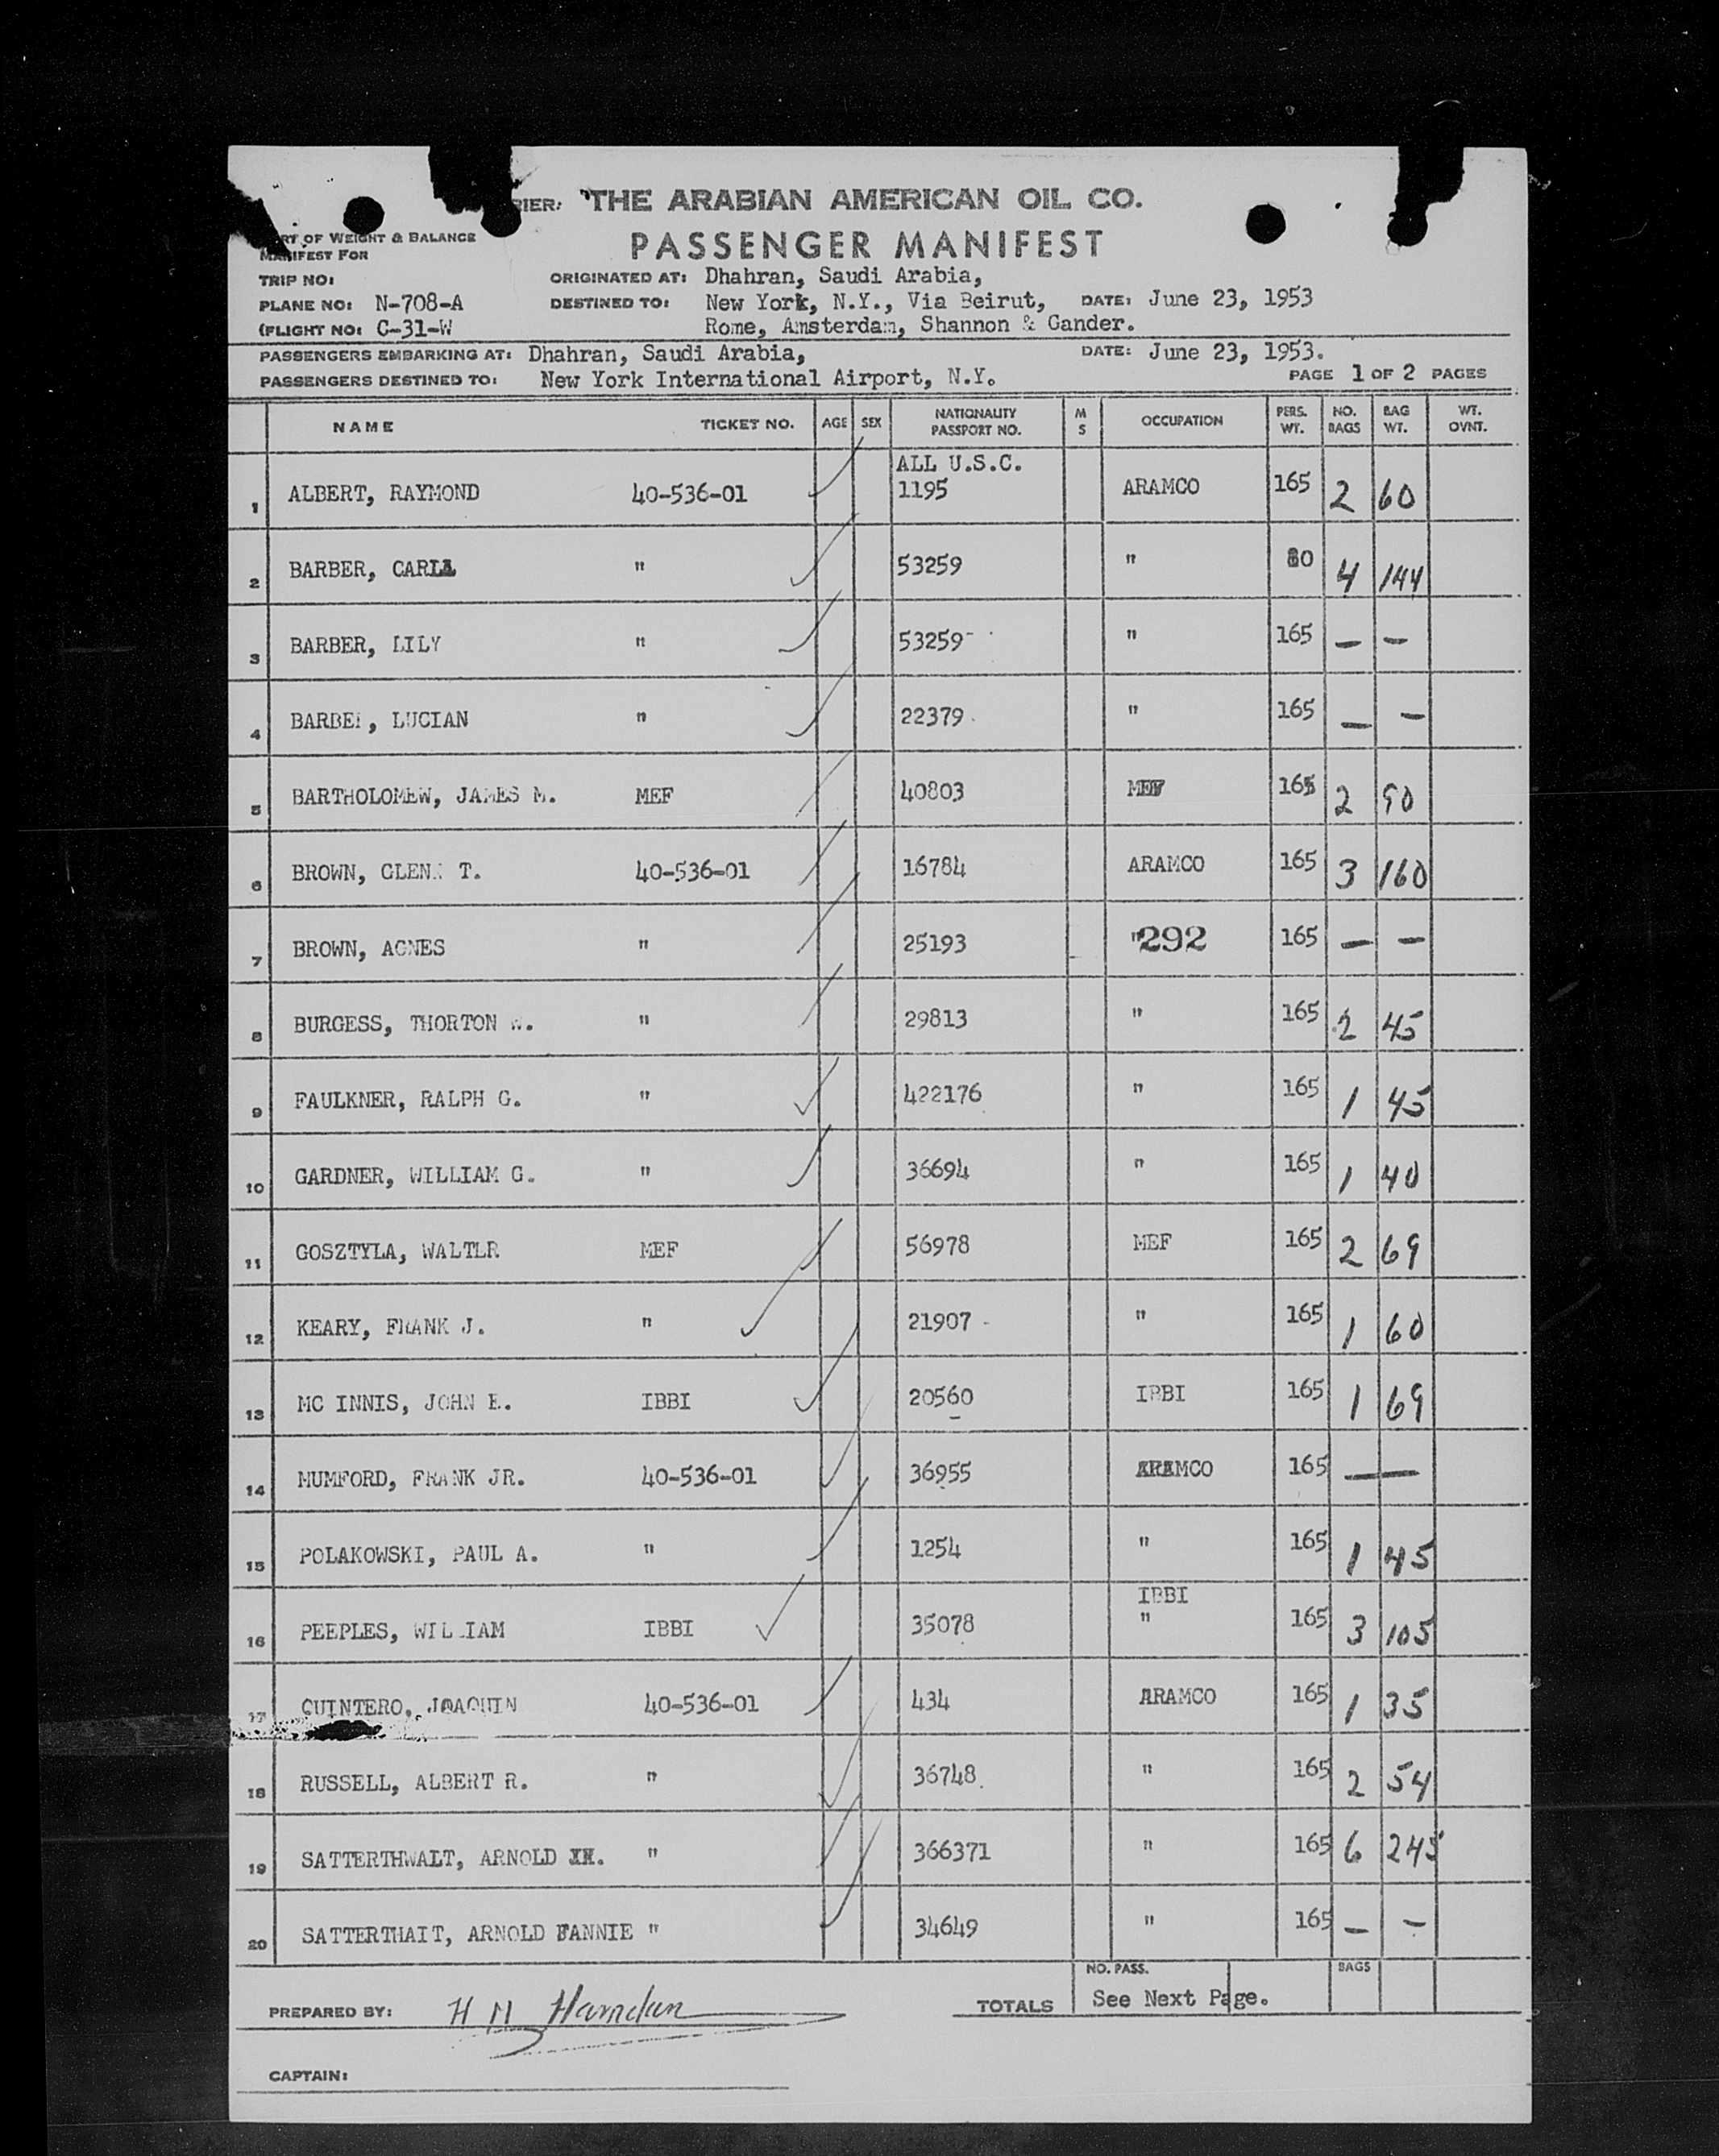 RIER: THE ARABIAN AMERICAN OIL CO.
PASSENGER MANIFEST
OF WEIGHT & BALANCE
MANIFEST FOR
TRIP NO: ORIGINATED AT: Dhahran, Saudi Arabia,
PLANE NO: N-708-A DESTINED TO: New York, N.Y., Via Beirut, DATE: June 23, 1953
(FLIGHT NO: C-31-W Rome, Amsterdam, Shannon & Gander.
PASSENGERS EMBARKING AT: Dhahran, Saudi Arabia, DATE: June 23, 1953.
PASSENGERS DESTINED TO: New York International Airport, N.Y. PAGE 1 OF 2 PAGES
NAME TICKET NO. AGE SEX NATIONALITY PASSPORT NO. M S OCCUPATION PERS. WT. NO. BAGS BAG WT. WT. OVNT.
ALL U.S.C.
1 ALBERT, RAYMOND 40-536-01 1195 ARAMCO 165 2 60
2 BARBER, CARLA " 53259 " 80 4 144
3 BARBER, LILY " 53259 " 165 — —
4 BARBER, LUCIAN " 22379 " 165 — —
5 BARTHOLOMEW, JAMES M. MEF 40803 MEF 165 2 90
6 BROWN, GLENN T. 40-536-01 16784 ARAMCO 165 3 160
7 BROWN, AGNES " 25193 "292 165 — —
8 BURGESS, THORTON W. " 29813 " 165 2 45
9 FAULKNER, RALPH G. " 422176 " 165 1 45
10 GARDNER, WILLIAM G. " 36694 " 165 1 40
11 GOSZTYLA, WALTER MEF 56978 MEF 165 2 69
12 KEARY, FRANK J. " 21907 " 165 1 60
13 MC INNIS, JOHN E. IBBI 20560 IBBI 165 1 69
14 MUMFORD, FRANK JR. 40-536-01 36955 ARAMCO 165 — —
15 POLAKOWSKI, PAUL A. " 1254 " 165 1 45
IBBI
16 PEEPLES, WILLIAM IBBI 35078 " 165 3 105
17 QUINTERO, JOAQUIN 40-536-01 434 ARAMCO 165 1 35
18 RUSSELL, ALBERT R. " 36748 " 165 2 54
19 SATTERTHWALT, ARNOLD " 366371 " 165 6 245
20 SATTERTHAIT, ARNOLD FANNIE " 34649 " 165 — —
NO. PASS. BAGS
PREPARED BY: H M Hamdan TOTALS See Next Page.
CAPTAIN: